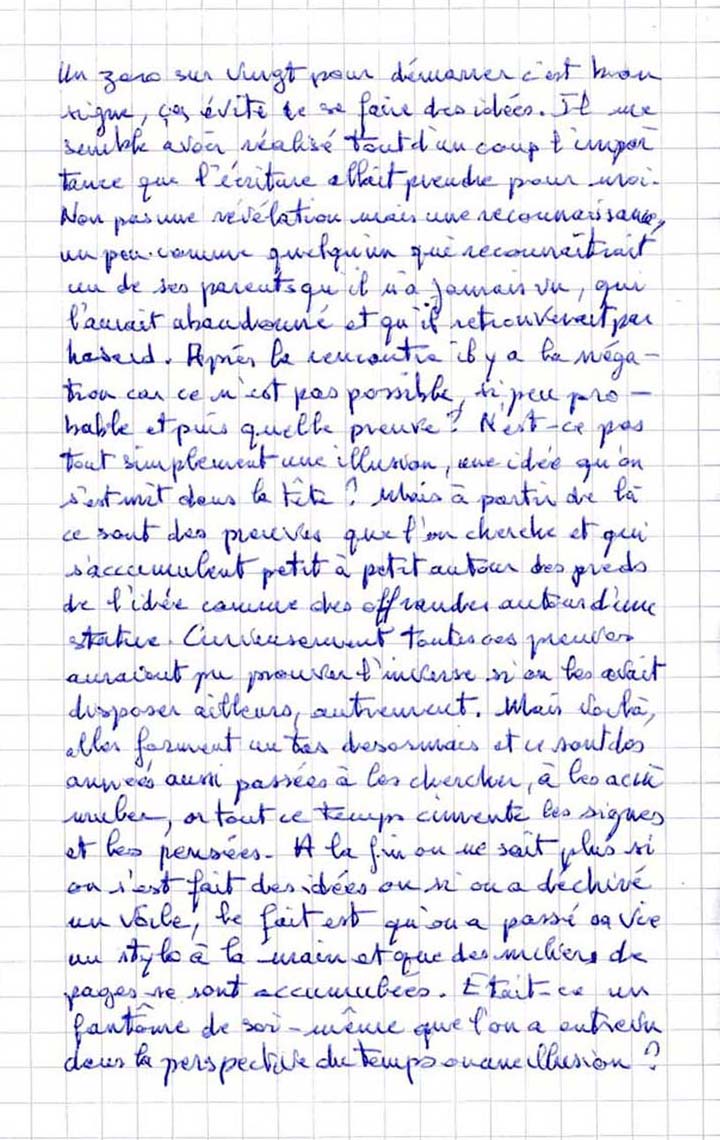 Un zero sur vingt pour démarrer c'est bon
signe, ça évite de se faire des idées. Il me
semble avoir réalisé tout d'un coup l'impor
tance que l'écriture allait prendre pour moi.
Non pas une révélation mais une reconnaissance,
un peu comme quelqu'un qui reconnaîtrait
un de ses parents qu'il n'a jamais vu, qui
l'aurait abandonné et qu'il retrouverait par
hasard. Après la rencontre il y a la néga-
tion car ce n'est pas possible, si peu pro-
bable et puis quelle preuve ? N'est-ce pas
tout simplement une illusion, une idée qu'on
s'est mit dans la tête ? Mais à partir de là
ce sont des preuves que l'on cherche et qui
s'accumulent petit à petit autour des pieds
de l'idée comme des offrandes autour d'une
statue. Curieusement toutes ces preuves
auraient pu prouver l'inverse si on les avait
disposer ailleurs, autrement. Mais voilà,
elles forment un tas desormais et ce sont des
années aussi passées à les chercher, à les accu
muler, or tout ce temps cimente les signes
et les pensées. A la fin on ne sait plus si
on s'est fait des idées ou si on a déchiré
un voile, le fait est qu'on a passé sa vie
un stylo à la main et que des milliers de
pages se sont accumulées. Etait-ce un
fantôme de soi-même que l'on a entrevu
dans la perspective du temps ou une illusion ?